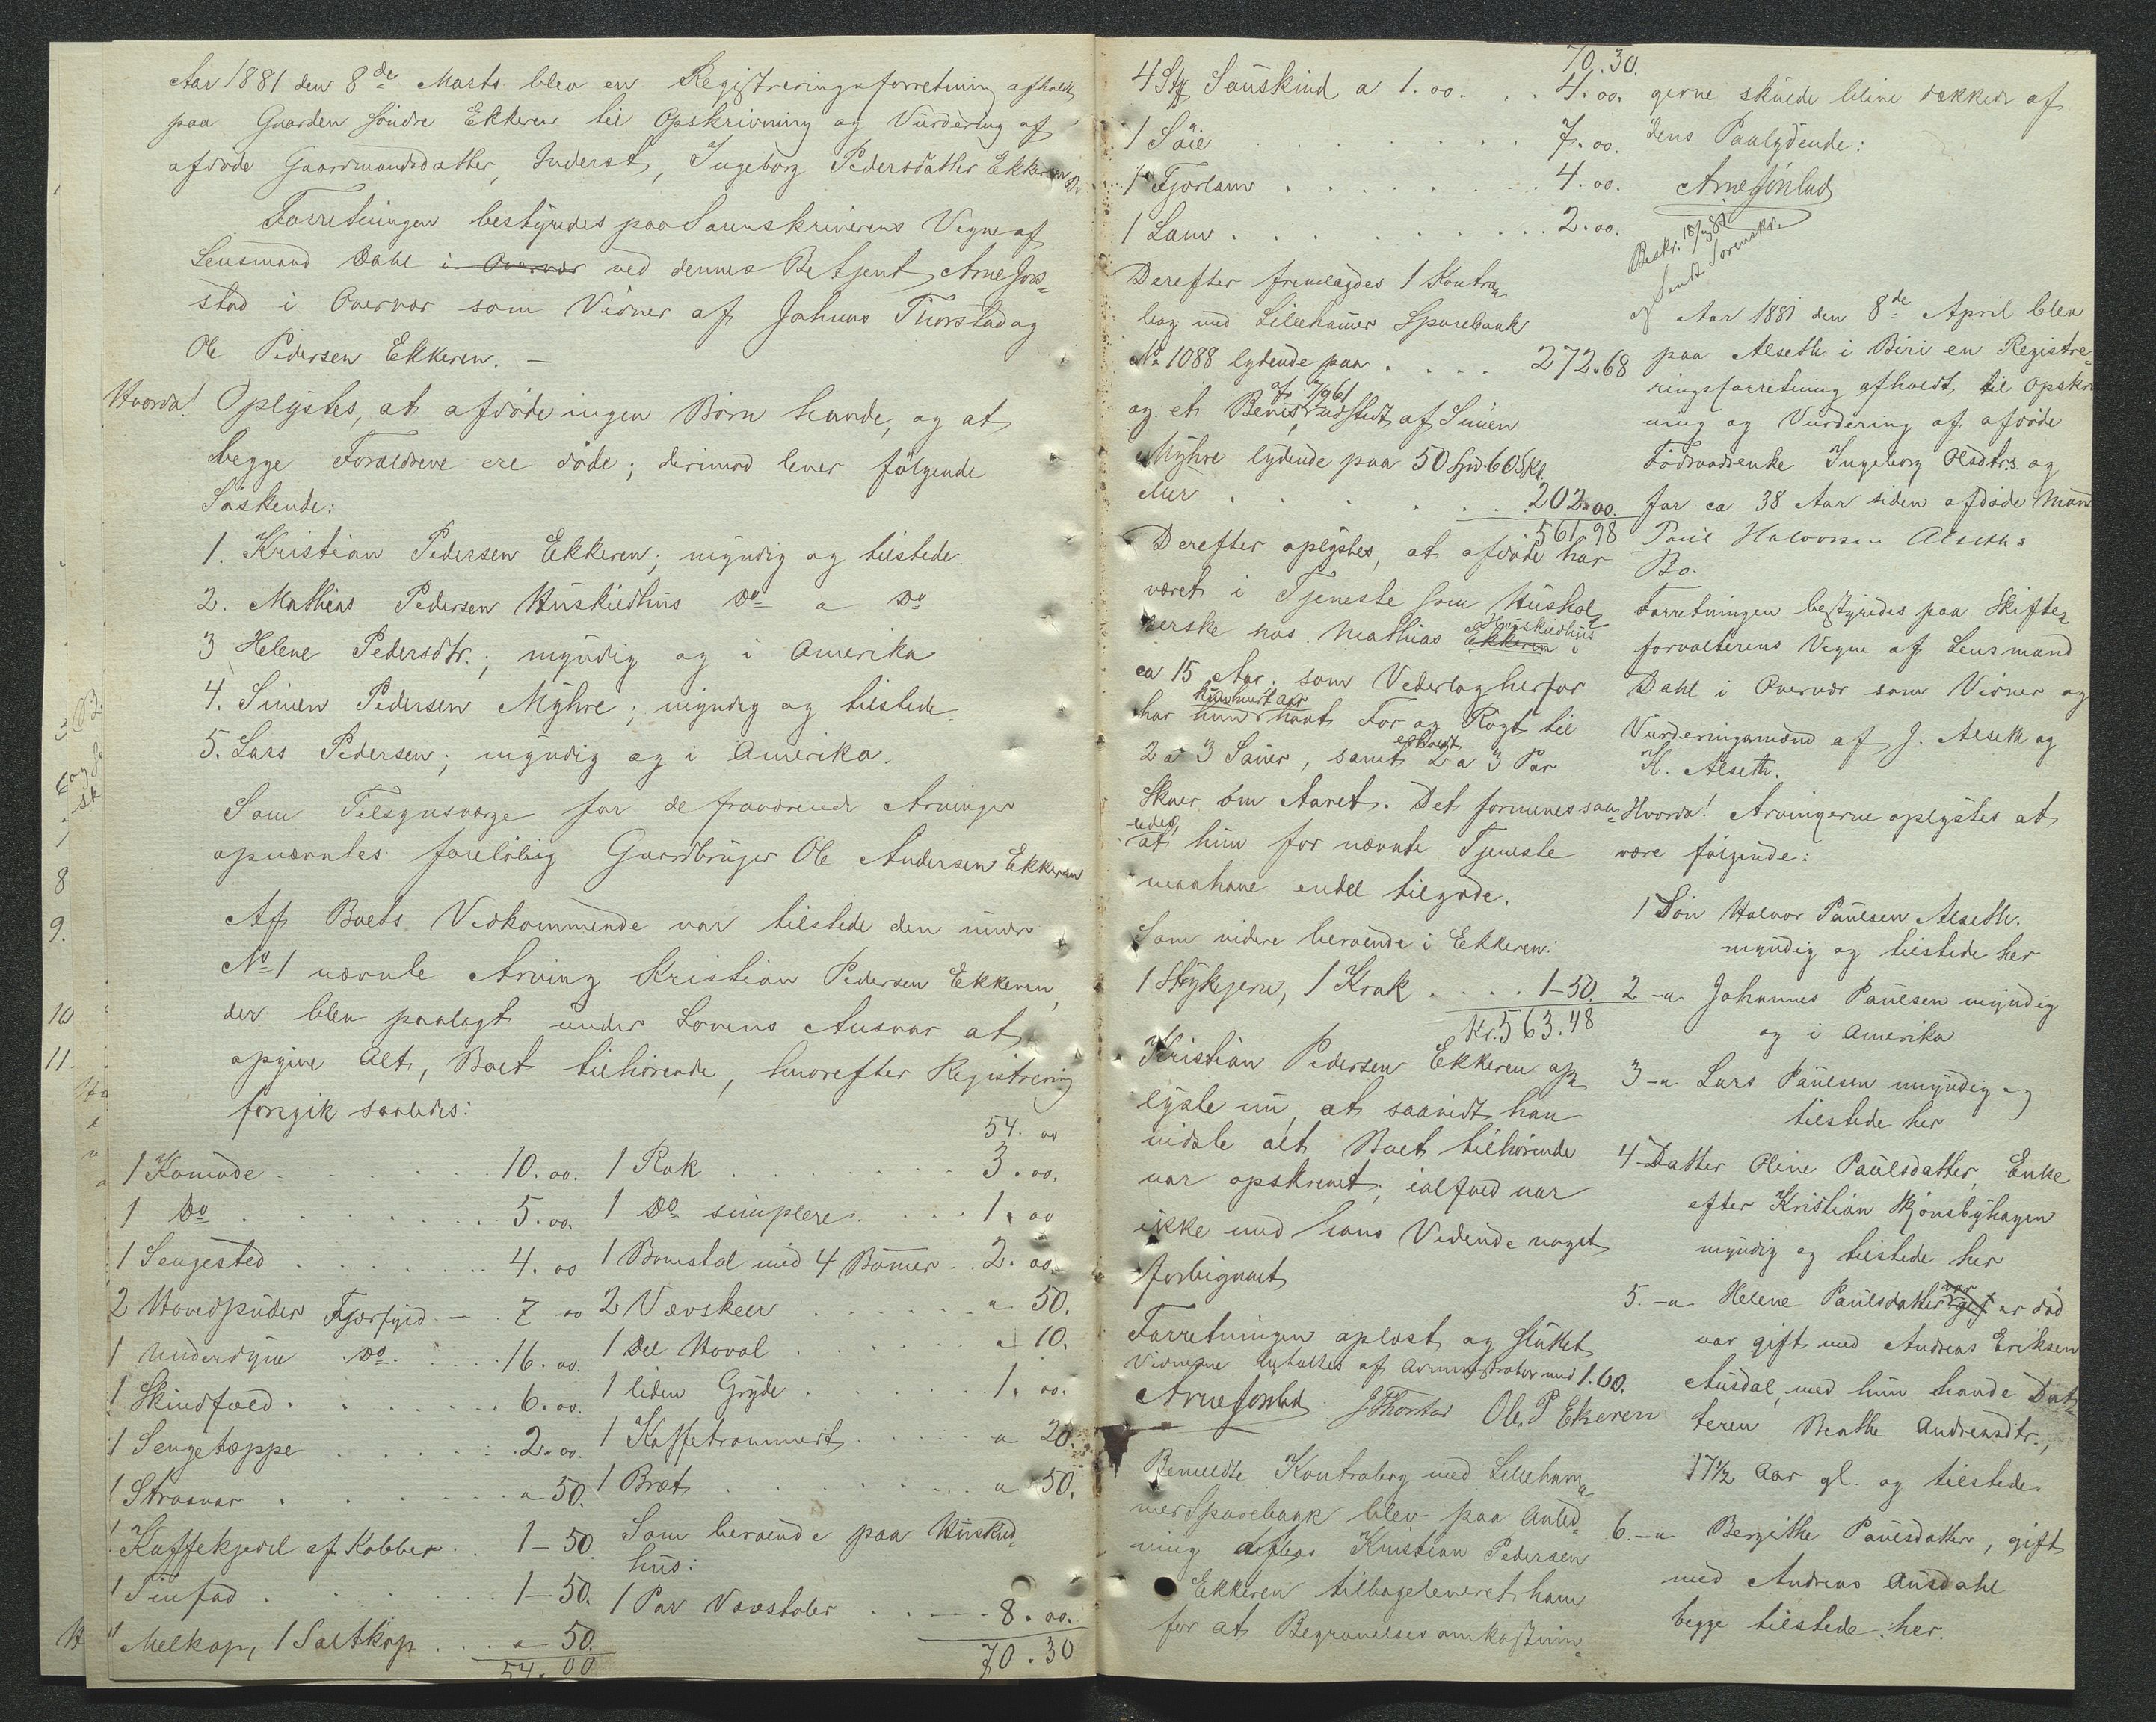 Aar 1881 den 8de Marts blev en Registreringsforretning afholdt
paa Gaarden søndre Ekkeren til Opskrivning og Vurdering af
afdøde Gaardmandsdatter, Inderst, Ingeborg Pedersdatter Ekkeren
Forretningen bestyredes paa Sorenskriverens Vegne af
Lensmand Dahl i Overvær ved dennes Betjent Arne Jøns-
stad i Overvær som Vidner af Johans Thorstad og
Ole Pedersen Ekkeren. —
Hvorda! Oplystes, at afdøde ingen Børn havde, og at
begge Forældrene ere døde; derimod lever følgende
Søskende:
1. Kristian Pedersen Ekkeren; myndig og tilstede.
2. Mathias Pedersen Huskedhus Do a Do
3 Helene Pedersdtr.; myndig og i Amerika
4. Simen Pedersen Myhre; myndig og tilstede.
5. Lars Pedersen; myndig og i Amerika.
Som Tilsynsværge for de fraværende Arvinger
opnævntes foreløbig Gaardbruger Ole Andersen Ekkeren
Af Boets Vedkommende var tilstede den under
No 1 nævnte Arving Kristian Pedersen Ekkeren,
der blev paalagt under Lovens Ansvar at
opgive Alt, Boet tilhørende, hvorefter Registrering
foregik saaledes:
1 Komode . . . 10. 00.
1 Do . . . 5. 00.
1 Sengested . . . 4. 00
2 Hovedpuder Fjærfyld — . 7 00
1 Underdyne Do . . . 16. 00.
1 Skindfæld . . . 6. 00.
1 Sengetæppe . . . 2. 00.
1 Straavar . . . a 50.
1 Kaffekjedel af Kobber . . 1 - 50
1 Tinfad . . . 1 - 50.
1 Melkop, 1 Saltkop . . . a 50.
54. 00
54. 00
1 Rok . . . 3. 00.
1 Do simplere . . . 1. 00
1 Bomstol med 4 Bomer . . 2. 00.
2 Vævskeer . . . a 50.
1 Del Hovol . . . a 10.
1 liden Gryde . . . 1. 00.
1 Kaffetrommert . . . a 20.
1 Bræt . . . a 50.
Som beroende paa Huskied-
hus:
1 Par Vævstoler . . . 8. 00.
70. 30
70. 30.
4 Stk Sauskind a 1. 00. . . 4. 00.
1 Søie . . . 7. 00.
1 Fjorlam . . . 4. 00.
1 Lam . . . 2. 00.
Derefter fremlagdes 1 Kontra-
bog med Lillehamer Sparebank
No 1088 lydende paa . . . 272. 68
og et Bevis af 7/9 61 udstedt af Simen
Myhre lydende paa 50 Spd. 60 Skl.
eller . . . 202. 00.
561 98
Derefter oplystes, at afdøde har
været i Tjeneste som Hushol-
derske hos Mathias Ekkeren Huskiedhus i
ca 15 Aar. som Vederlag herfor
har hun hvert Aar havt For og Røgt til
2 a 3 Sauer, samt erholdt 2 a 3 Par
Skoer om Aaret. Det formenes saa-
ledes, at hun for nævnte Tjeneste
maa have endel tilgode.
Som videre beroende i Ekkeren:
1 Strykejern, 1 Krak . . . 1-50.
Kr. 563. 48
Kristian Pedersen Ekkeren op-
lyste nu, at saavidt han
vidste alt Boet tilhørende
var opskrevet, ialfald var
ikke med hans Vidende noget
forbigaaet
Forretningen oplæst og sluttet
Vidnerne lyholdes af Administrator med 1.60.
Arne Jønstad J Thorstad Ole. P Ekeren
Bemeldte Kontrabog med Lilleham-
mer Sparebank blev paa Anled-
ning Kristian Pedersen
Ekkeren tilbageleveret ham
for at Begravelsesomkostnin-
gerne skulde blive dækkede af
dens Paalydende:
Arne Jønstad
Beskr. 18/4 81
og Sendt Sorenskr.
Aar 1881 den 8de April blev
paa Alseth i Biri en Registre-
ringsforretning afholdt til Opskriv
ning og Vurdering af afdøde
Føderaadsenke Ingeborg Olsdtrs. og
for ca 38 Aar siden afdøde Mand
Paul Halvorsen Alseths
Bo.
Forretningen bestyredes paa Skifte-
forvalterens Vegne af Lensmand
Dahl i Overvær som Vidner og
Vurderingsmænd af J. Alseth og
K. Alseth.
Hvorda! Arvingerne oplystes at
være følgende:
1 Søn Halvor Paulsen Alseth.
myndig og tilstede her
2 -a- Johannes Paulsen myndig
og i Amerika
3 -a- Lars Paulsen myndig og
tilstede her
4 Datter Oline Paulsdatter, Enke
efter Kristian Skjønsbyhagen
myndig og tilstede her
5. -a- Helene Paulsdatter er død
var gift med Andreas Eriksen
Ausdal, med hun havde Dat-
teren Beathe Andreasdtr.,
17 1/2 Aar gl. og tilstede.
6. -a- Bergithe Paulsdatter, gift
med Andreas Ausdahl
begge tilstede her.